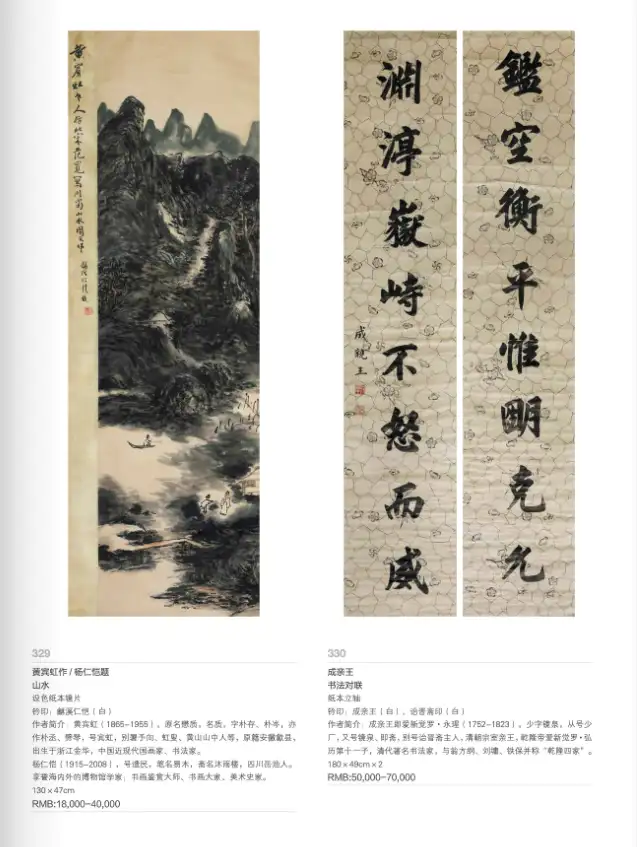 鑑空衡平惟朙克允
淵渟嶽峙不怒而威
成親王
329
黄宾虹作 / 杨仁恺题
山水
设色纸本镜片
钤印:龢溪仁恺(白)
作者简介:黄宾虹(1865-1955),原名懋质,名质,字朴存、朴岑,亦
作朴丞、劈琴,号宾虹,别署予向、虹叟、黄山山中人等,原籍安徽歙县,
出生于浙江金华,中国近现代国画家、书法家。
杨仁恺(1915-2008),号遗民,笔名易木,斋名沐雨楼,四川岳池人。
享誉海内外的博物馆学家;书画鉴赏大师、书画大家、美术史家。
130×47cm
RMB:18,000-40,000
330
成亲王
书法对联
纸本立轴
钤印:成亲王(白)、诒晋斋印(白)
作者简介:成亲王即爱新觉罗·永瑆(1752-1823),少字镜泉,从号少
厂,又号镜泉、即斋,别号诒晋斋主人,清朝宗室亲王,乾隆帝爱新觉罗·弘
历第十一子,清代著名书法家,与翁方纲、刘墉、铁保并称“乾隆四家”。
180×49cm×2
RMB:50,000-70,000